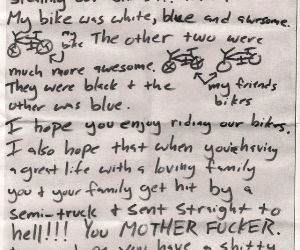 My bike was white, blue and awesome.
my bike The other two were
much more awesome.
They were black & the my friends
other was blue. bikes
I hope you enjoy riding our bikes.
I also hope that when you're having
a great life with a loving family
you & your family get hit by a
semi-truck & sent straight to
hell!!! You MOTHER FUCKER.
you have a shitty